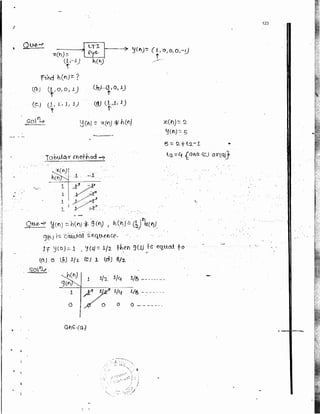 123
Que→ x(n)= (1,-1) → LTI sys. h(n) → y(n)= (1,0,0,0,-1)
Find h(n)=?
(a) (1,0,0,1) (b) (1,0,1)
(c) (1,1,1,1) (d) (1,1,1)
Sol→ y(n) = x(n) * h(n) x(n)= 2
y(n)= 5
5 = 2+L2-1
L2=4 {ans (c) or (a)}
Tabular method→
x(n) h(n) 1 -1
1
1
1
1
Que→ y(n) = h(n) * g(n) , h(n)= (1/2)^n u(n)
g(n) is causal sequence.
If y(0)=1 , y(1)= 1/2 then g(1) is equal to
(a) 0 (b) 1/2 (c) 1 (d) 3/2.
Sol→
h(n) g(n) 1 1/2 1/4 1/8 -------
1 1/4 1/8 -----
0 0 0 0 -------
ans.(a)